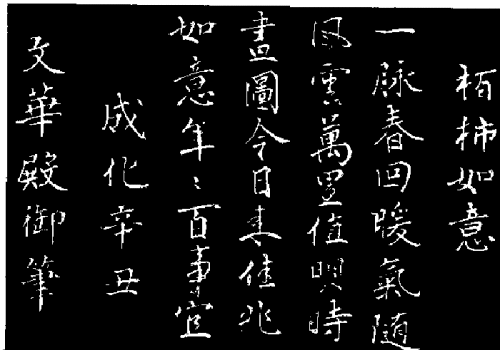 栢柿如意
一脉春回暖氣隨
風雲萬里值明時
畫圖今日來佳兆
如意年〻百事宜
成化辛丑
文華殿御筆